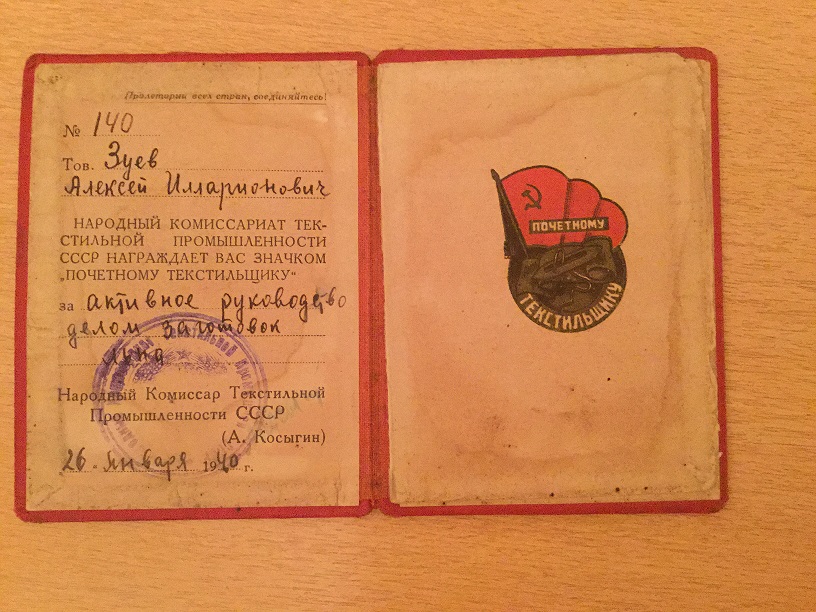 Пролетарии всех стран, соединяйтесь!
№ 140
Тов. Зуев
Алексей Илларионович
НАРОДНЫЙ КОМИССАРИАТ ТЕК-
СТИЛЬНОЙ ПРОМЫШЛЕННОСТИ
СССР НАГРАЖДАЕТ ВАС ЗНАЧКОМ
„ПОЧЕТНОМУ ТЕКСТИЛЬЩИКУ“
за активное руководство
делом заготовок
льна
Народный Комиссар Текстильной
Промышленности СССР
(А. Косыгин)
26 января 1940 г.
ПОЧЕТНОМУ
ТЕКСТИЛЬЩИКУ